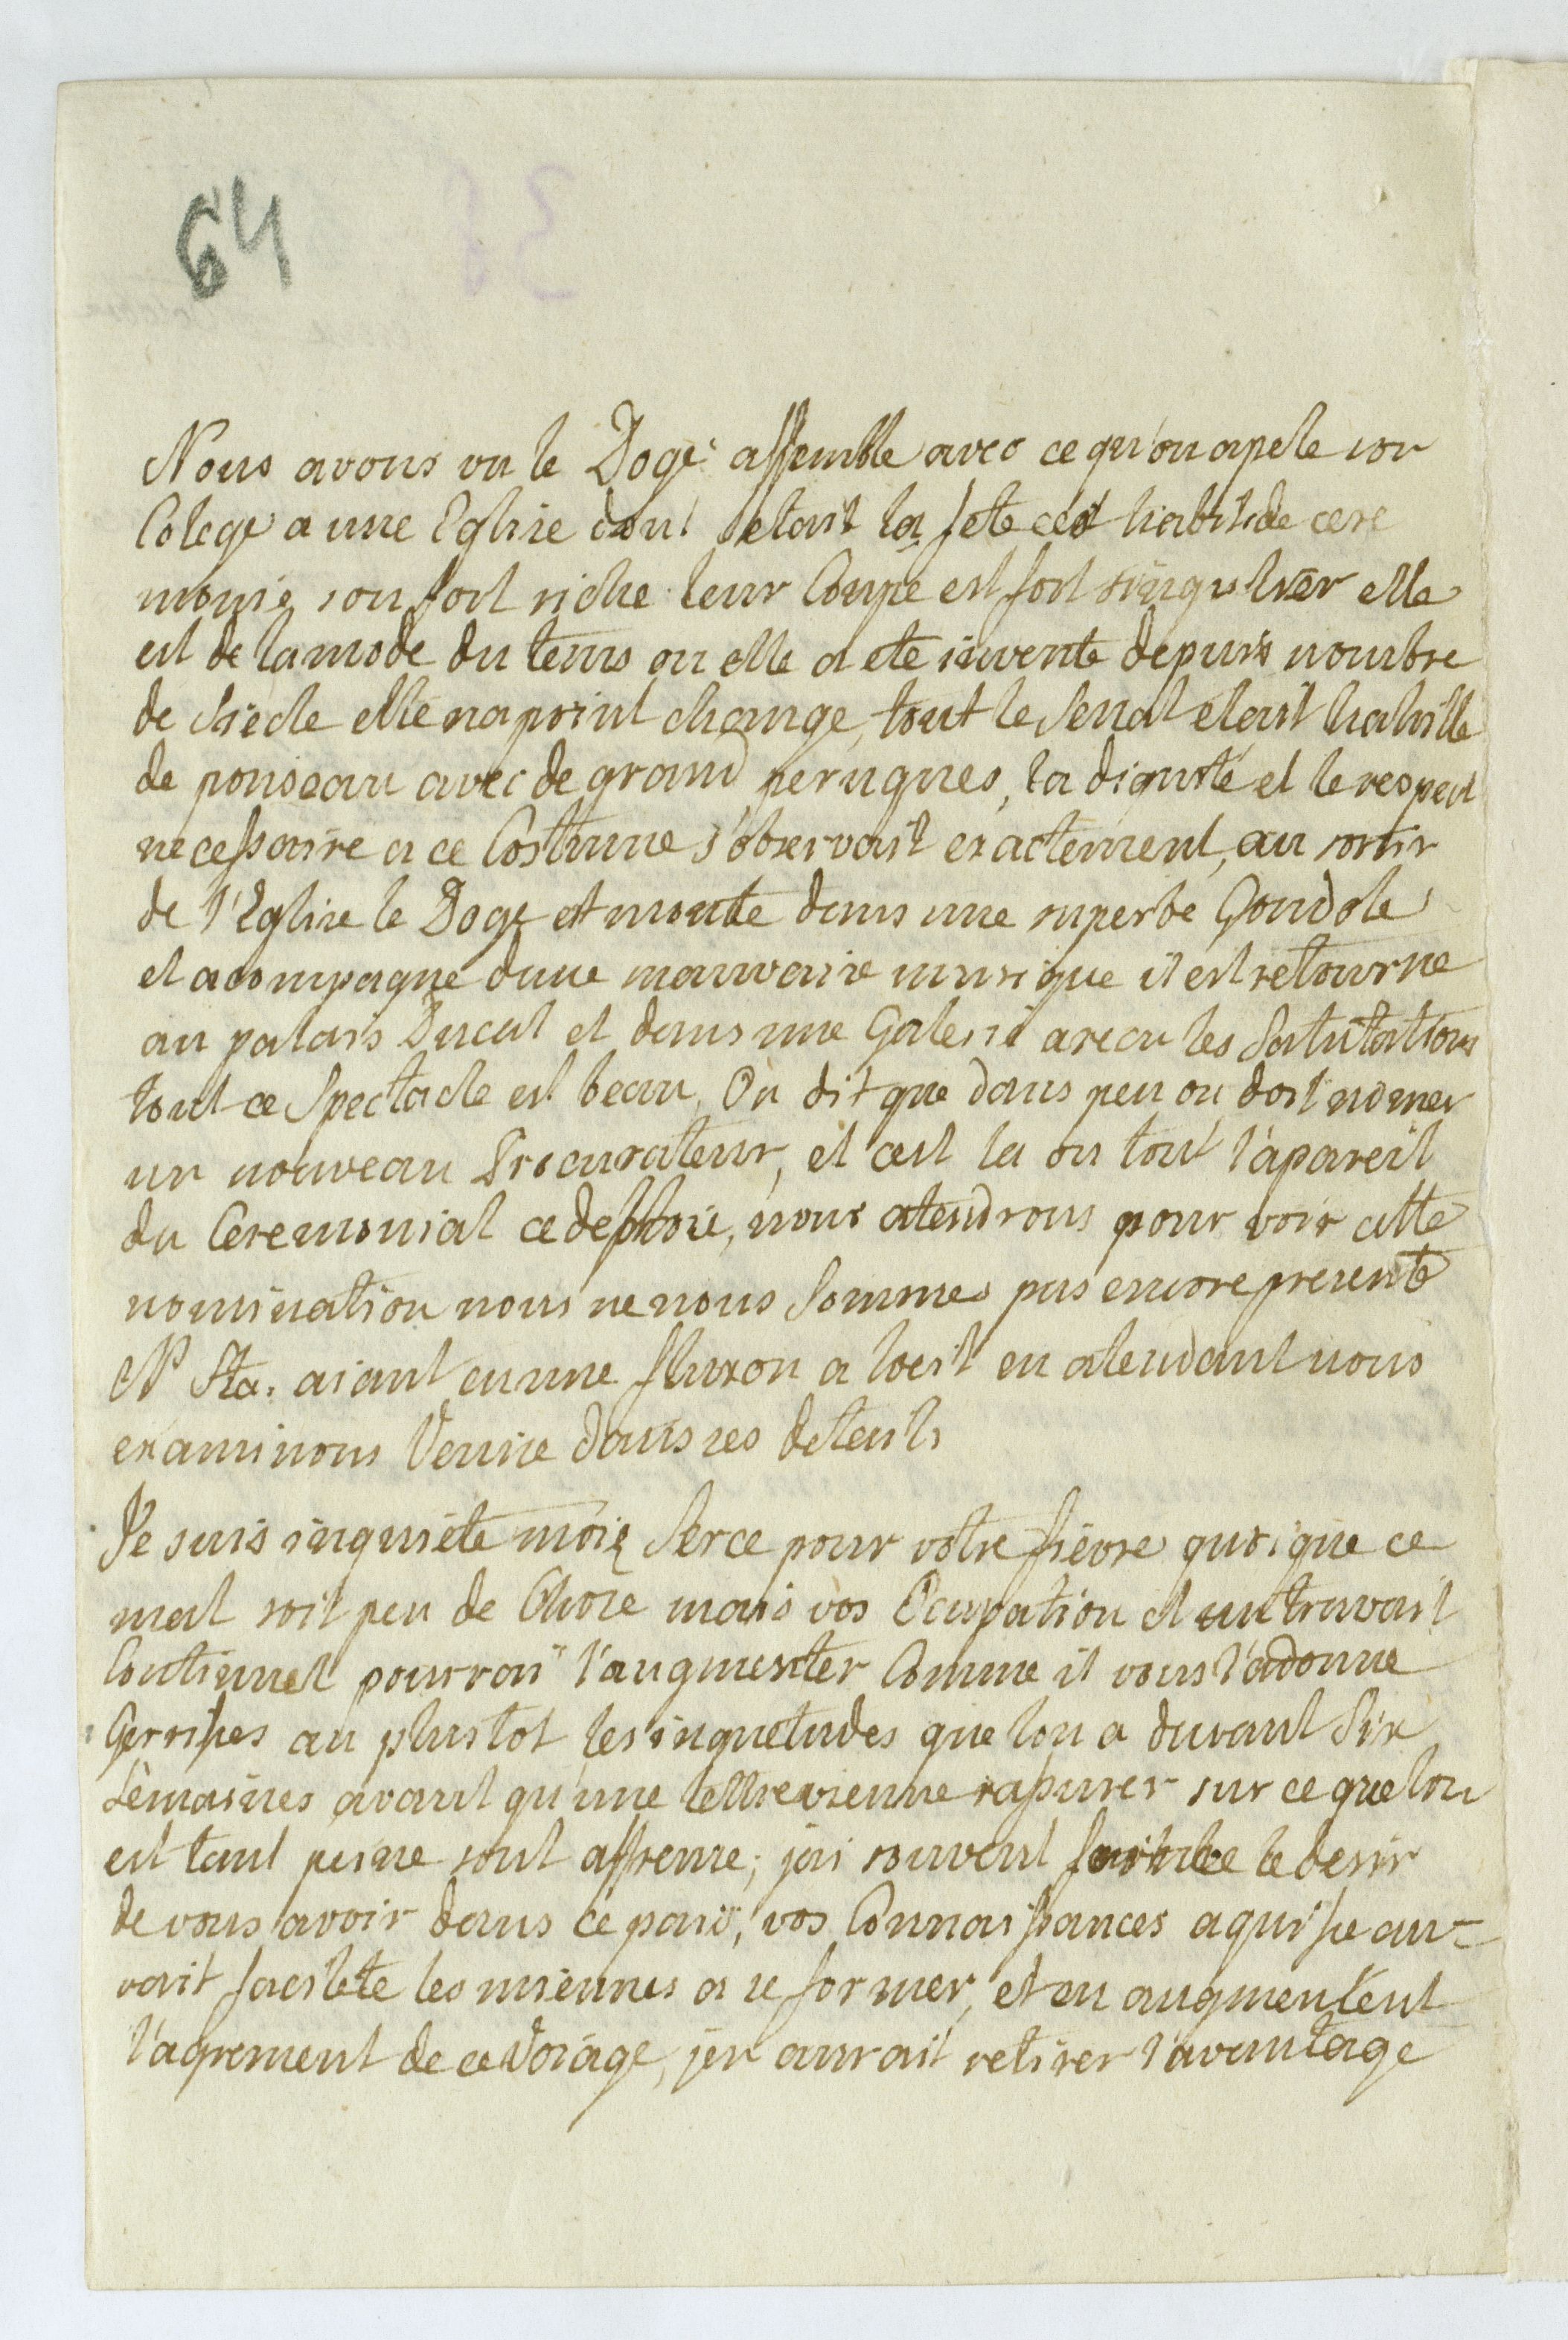 64
Nous avons vu le Doge assemble avec ce qu'on apele son
Colege a une Eglise dont s'etait la fete ces habit de cere
monie son fort riche leur Coupe est fort singulier elle
est de la mode du tems ou elle a ete invente depuis nombre
de Siecle elle na point change, tout le Senat etait habille
de ponseau avec de grand perugues, la dignité et le respect
necessaire a ce Costume s'observait exactement, au sortir
de l'Eglise le Doge est monte dans une superbe Gondole
et acompagne dune mauvaise musique il est retourne
au palais Ducal et dans une Galerie a recu les Salutations
tout ce Spectacle est beau, On dit que dans peu on doit nomer
un nouveau Procurateur, et cest la ou tout l'apareil
du Ceremonial ce desploie, nous atendrons pour voir cette
nomination nous ne nous Sommes pas encore presente
Sta. aiant eu une fluxion a loeil en atendant nous
examinons Venise dans ses deteils
Je suis inquiete pour votre fièvre quoique ce
mal soit peu de Chose mais vos Ocupation et un travail
Continuel pourroi l'augmenter Comme il vous l'a donne
au plustot, les inquetudes que lon a durant Six
semaines avant qu'une lettre vienne rasurer sur ce que lon
est tant peine sont affreuse; jai souvent le desir
de vous avoir dans ce païs, vos Connaissances aquise au-
rait facilete les miennes a se former, et en augmentent
l'agrement de ce Voiage, jen aurait retirer l'avantage